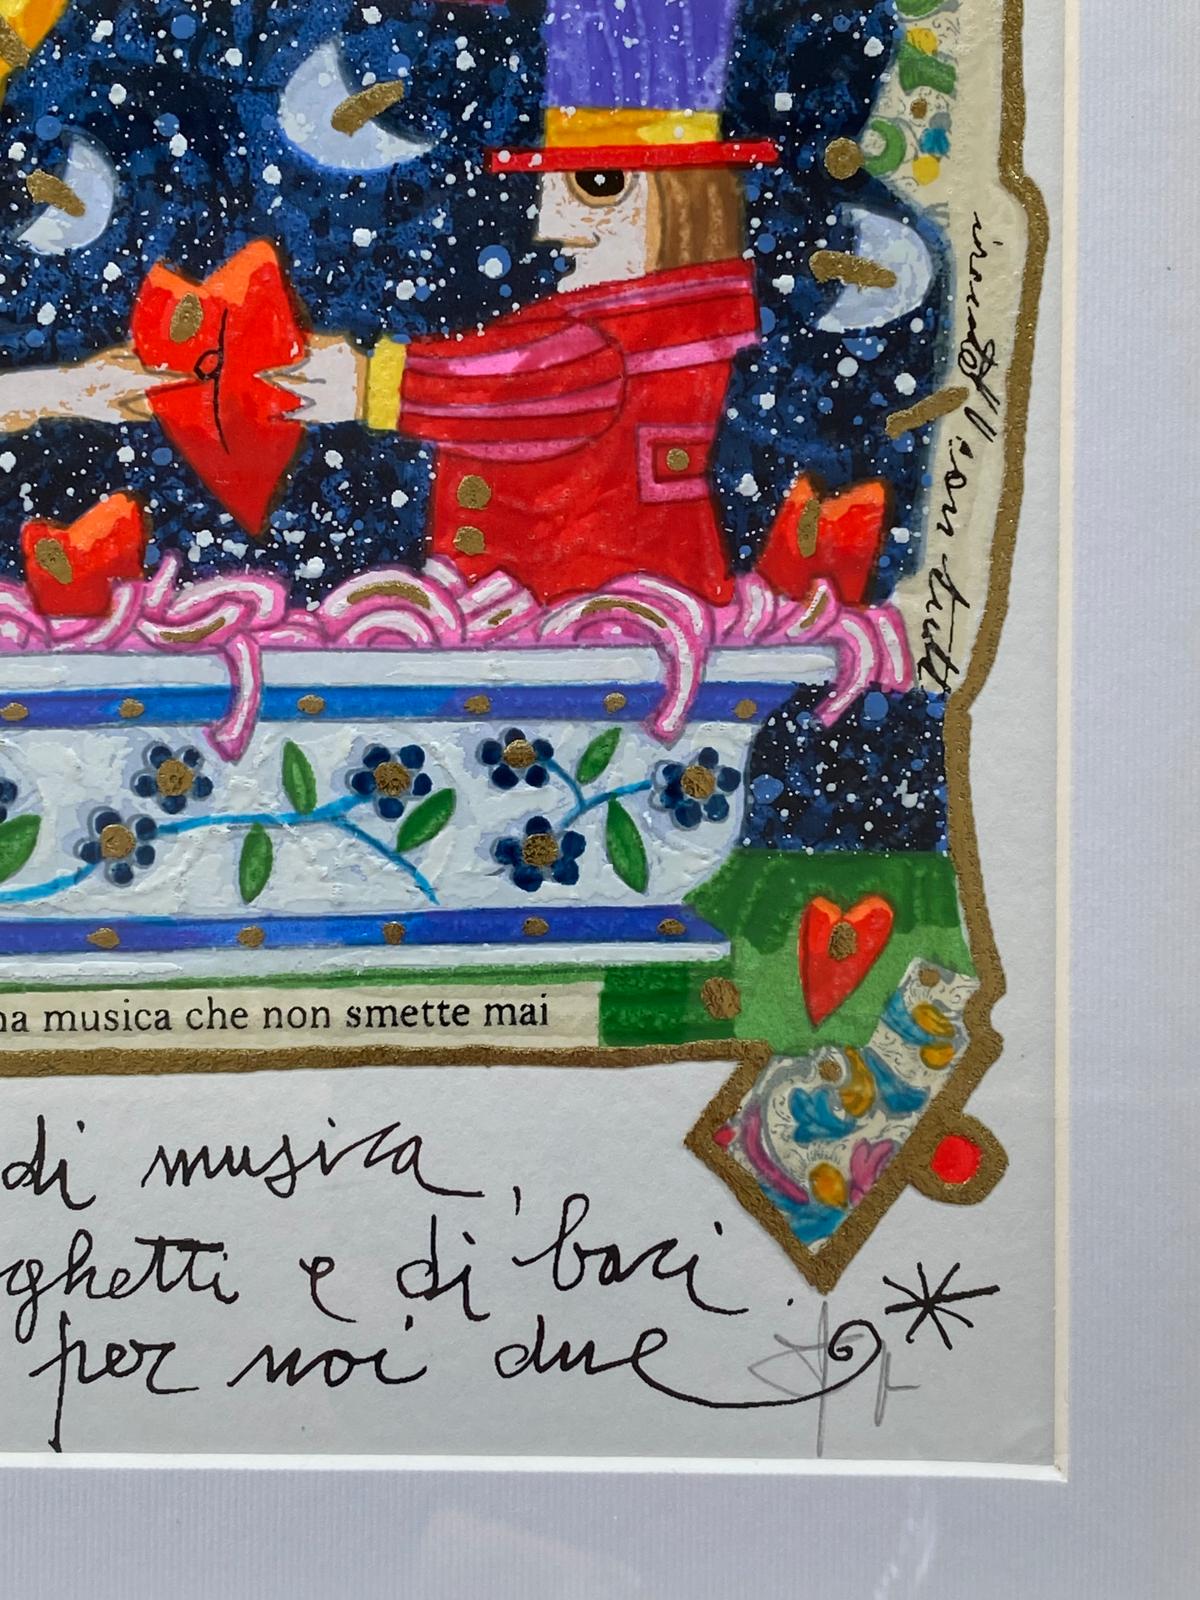 con tutt
na musica che non smette mai
di musica,
ghetti e di baci.
per noi due